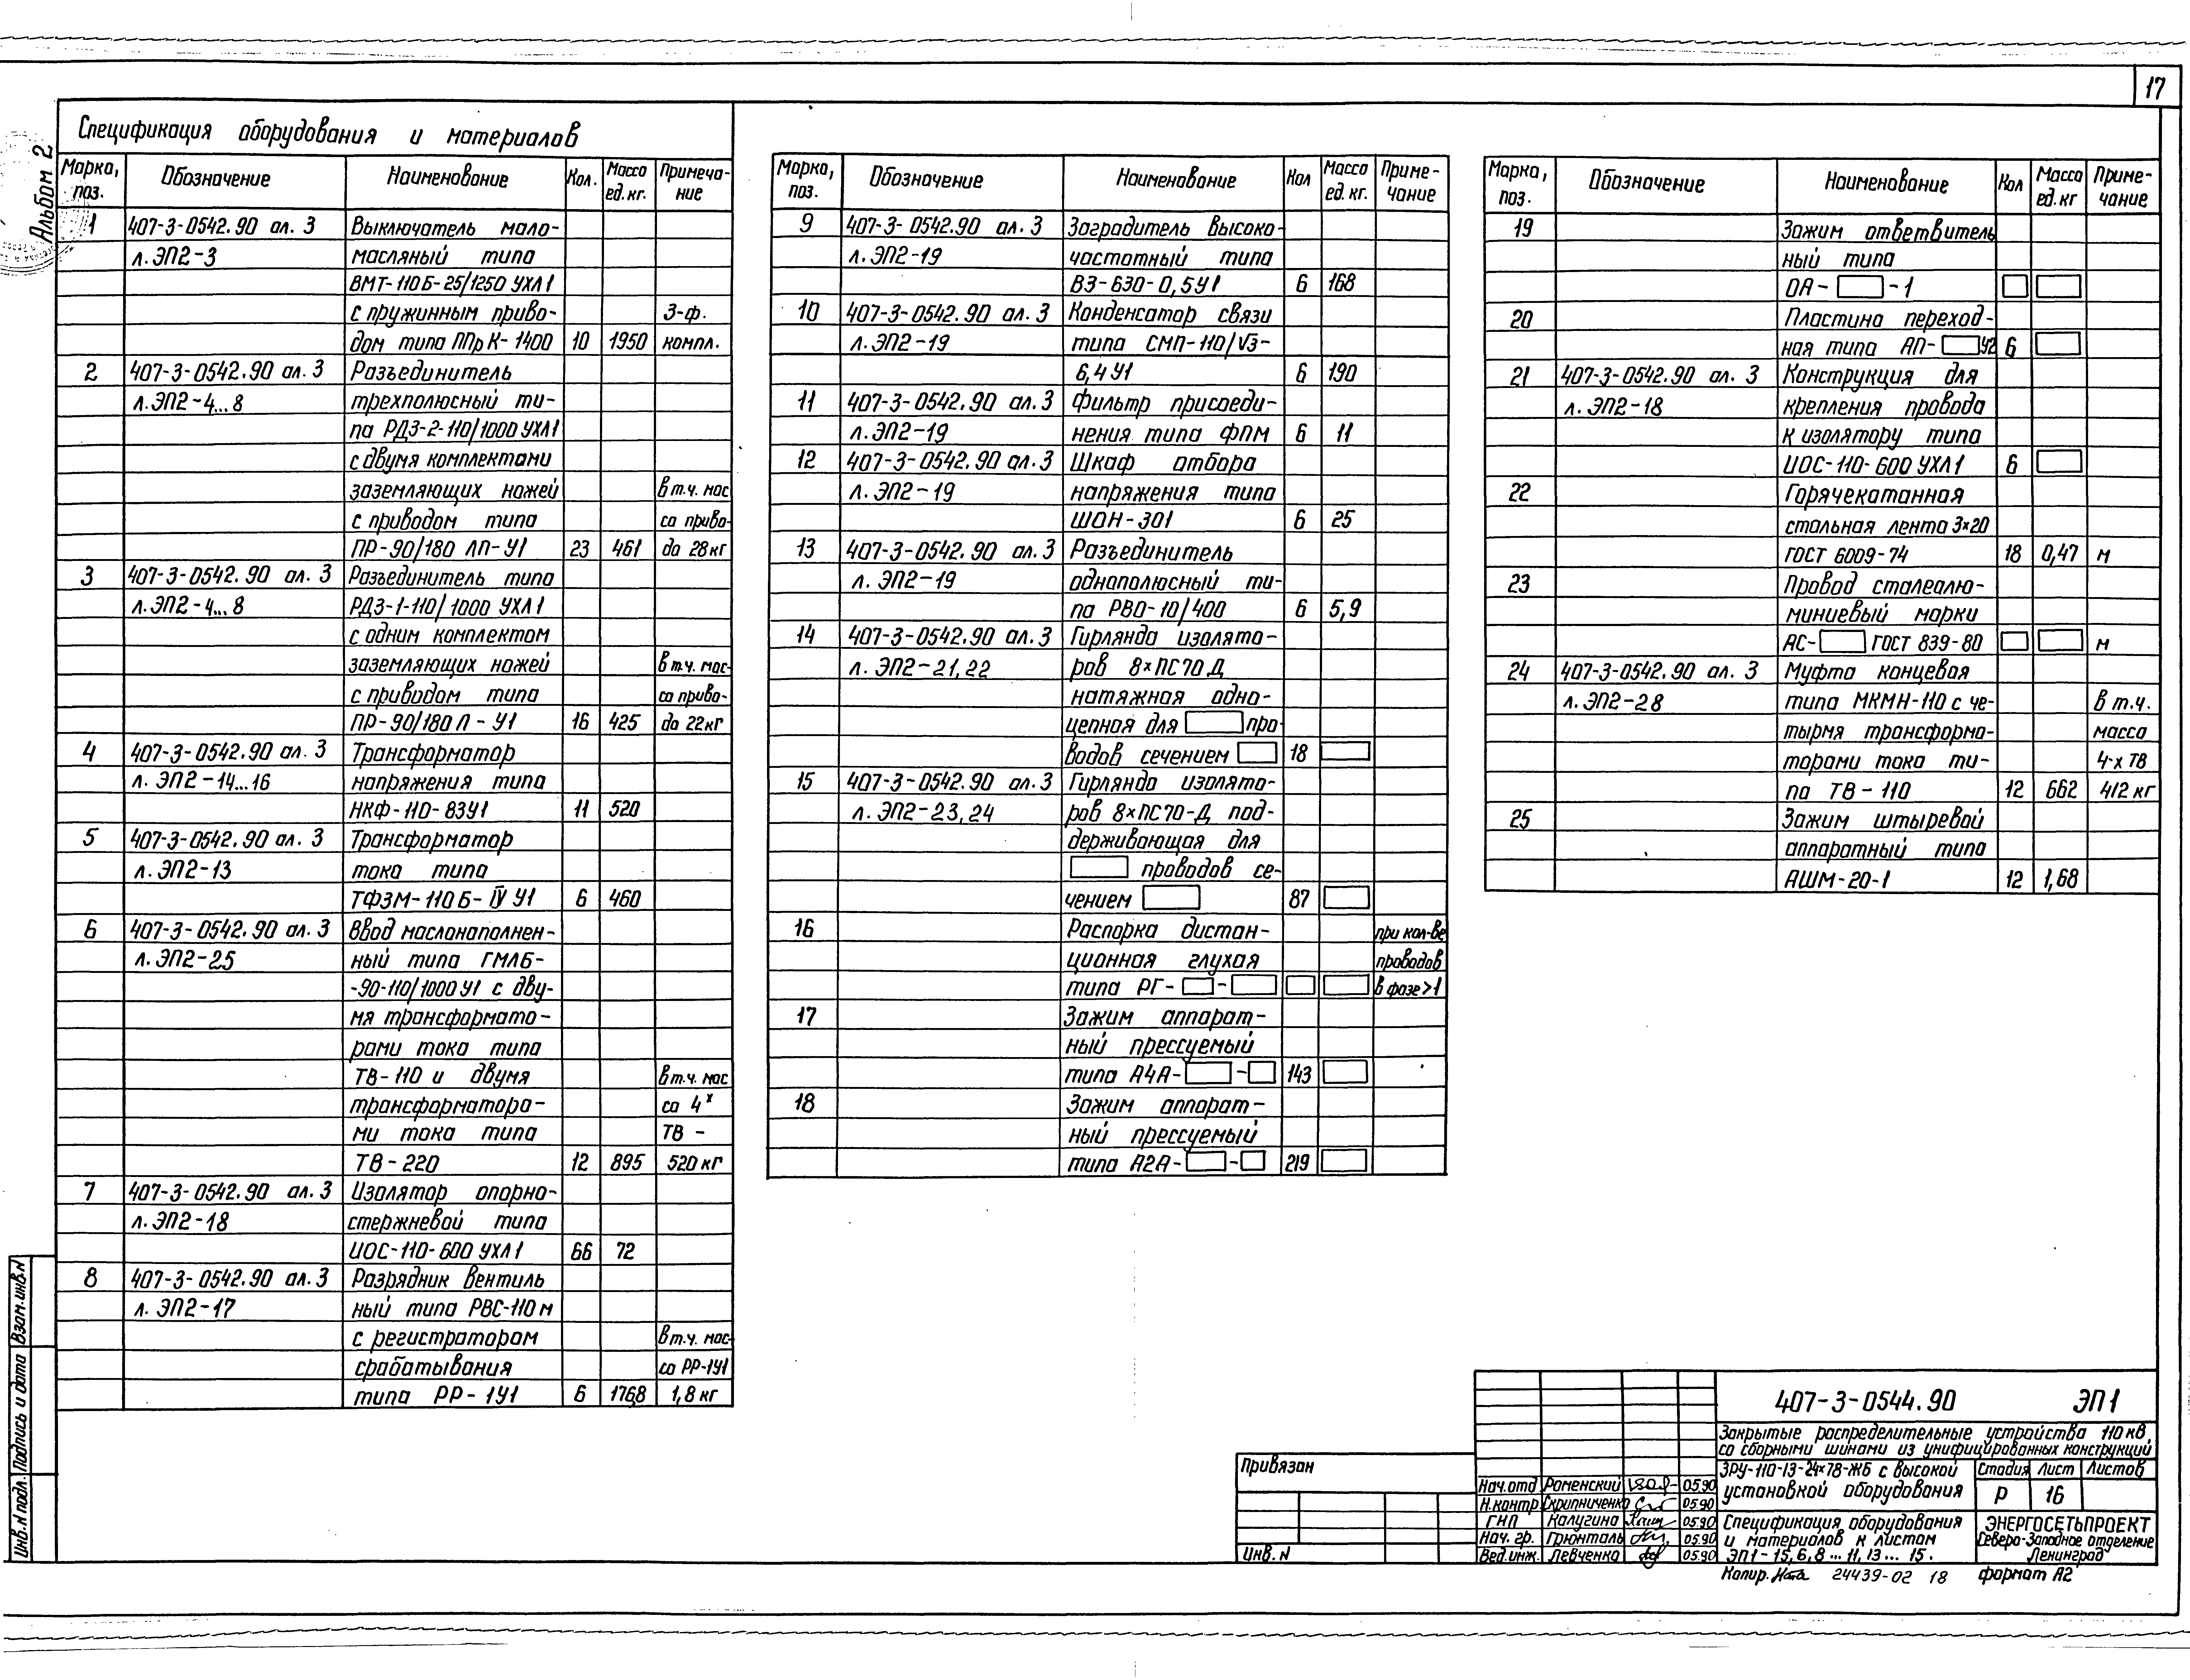 17
Альбом 2
Спецификация оборудования и материалов
Марка, поз. Обозначение Наименование Кол. Масса ед. кг. Примечание
1 407-3-0542.90 ал. 3 Выключатель мало-
л. ЭП2-3 масляный типа
ВМТ-110Б-25/1250 УХЛ1
с пружинным приво- 3-ф.
дом типа ППрК-1400 10 1950 компл.
2 407-3-0542.90 ал. 3 Разъединитель
л. ЭП2-4...8 трехполюсный ти-
па РДЗ-2-110/1000 УХЛ1
с двумя комплектами
заземляющих ножей в т.ч. мас
с приводом типа са приво-
ПР-90/180 ЛП-У1 23 461 да 28 кг
3 407-3-0542.90 ал. 3 Разъединитель типа
л. ЭП2-4...8 РДЗ-1-110/1000 УХЛ1
с одним комплектом
заземляющих ножей в т.ч. мас-
с приводом типа са приво-
ПР-90/180 Л-У1 16 425 да 22 кг
4 407-3-0542.90 ал. 3 Трансформатор
л. ЭП2-14...16 напряжения типа
НКФ-110-83У1 11 520
5 407-3-0542.90 ал. 3 Трансформатор
л. ЭП2-13 тока типа
ТФЗМ-110Б-IV У1 6 460
6 407-3-0542.90 ал. 3 Ввод маслонаполнен-
л. ЭП2-25 ный типа ГМЛБ-
-90-110/1000 У1 с дву-
мя трансформато-
рами тока типа
ТВ-110 и двумя в т.ч. мас
трансформатора- са 4х
ми тока типа ТВ -
ТВ-220 12 895 520 кг
7 407-3-0542.90 ал. 3 Изолятор опорно-
л. ЭП2-18 стержневой типа
ИОС-110-600 УХЛ1 66 72
8 407-3-0542.90 ал. 3 Разрядник вентиль
л. ЭП2-17 ный типа РВС-110м
с регистратором в т.ч. мас-
срабатывания са РР-1У1
типа РР-1У1 6 176,8 1,8 кг
Марка, поз. Обозначение Наименование Кол Масса ед. кг. Приме-чание
9 407-3-0542.90 ал. 3 Заградитель высоко-
л. ЭП2-19 частотный типа
ВЗ-630-0,5У1 6 168
10 407-3-0542.90 ал. 3 Конденсатор связи
л. ЭП2-19 типа СМП-110/√3-
6,4 У1 6 190
11 407-3-0542.90 ал. 3 Фильтр присоеди-
л. ЭП2-19 нения типа ФПМ 6 11
12 407-3-0542.90 ал. 3 Шкаф отбора
л. ЭП2-19 напряжения типа
ШОН-301 6 25
13 407-3-0542.90 ал. 3 Разъединитель
л. ЭП2-19 однополюсный ти-
па РВО-10/400 6 5,9
14 407-3-0542.90 ал. 3 Гирлянда изолято-
л. ЭП2-21,22 ров 8×ПС70 Д
натяжная одно-
цепная для про-
водов сечением 18
15 407-3-0542.90 ал. 3 Гирлянда изолято-
л. ЭП2-23,24 ров 8×ПС70-Д под-
держивающая для
проводов се-
чением 87
16 Распорка дистан- при кол-ве
ционная глухая проводов
типа РГ- - в фазе>1
17 Зажим аппарат-
ный прессуемый
типа А4А- - 143
18 Зажим аппарат-
ный прессуемый
типа А2А- - 219
Марка, поз. Обозначение Наименование Кол Масса ед. кг Приме-чание
19 Зажим ответвитель
ный типа
ОА- -1
20 Пластина переход-
ная типа АП- У2 6
21 407-3-0542.90 ал. 3 Конструкция для
л. ЭП2-18 крепления провода
к изолятору типа
ИОС-110-600 УХЛ1 6
22 Горячекатанная
стальная лента 3×20
ГОСТ 6009-74 18 0,47 м
23 Провод сталеалю-
миниевый марки
АС- ГОСТ 839-80 м
24 407-3-0542.90 ал. 3 Муфта концевая
л. ЭП2-28 типа МКМН-110 с че- в т.ч.
тырмя трансформа- масса
торами тока ти- 4-х ТВ
па ТВ-110 12 662 412 кг
25 Зажим штыревой
аппаратный типа
АШМ-20-1 12 1,68
Взам. инв. N
Подпись и дата
Инв. N подл.
Привязан
Инв. N
407-3-0544.90 ЭП1
Закрытые распределительные устройства 110 кВ
со сборными шинами из унифицированных конструкций
ЗРУ-110-13-24×78-ЖБ с высокой
установкой оборудования
Стадия Лист Листов
Р 16
Нач. отд Роменский 05.90
Н.контр Скрипниченко 05.90
ГИП Калугина 05.90
Нач. гр. Грюнталь 05.90
Вед. инж. Левченко 05.90
Спецификация оборудования
и материалов к листам
ЭП1-15,6,8...11,13...15.
ЭНЕРГОСЕТЬПРОЕКТ
Северо-Западное отделение
Ленинград
Копир. 24439-02 18 формат А2